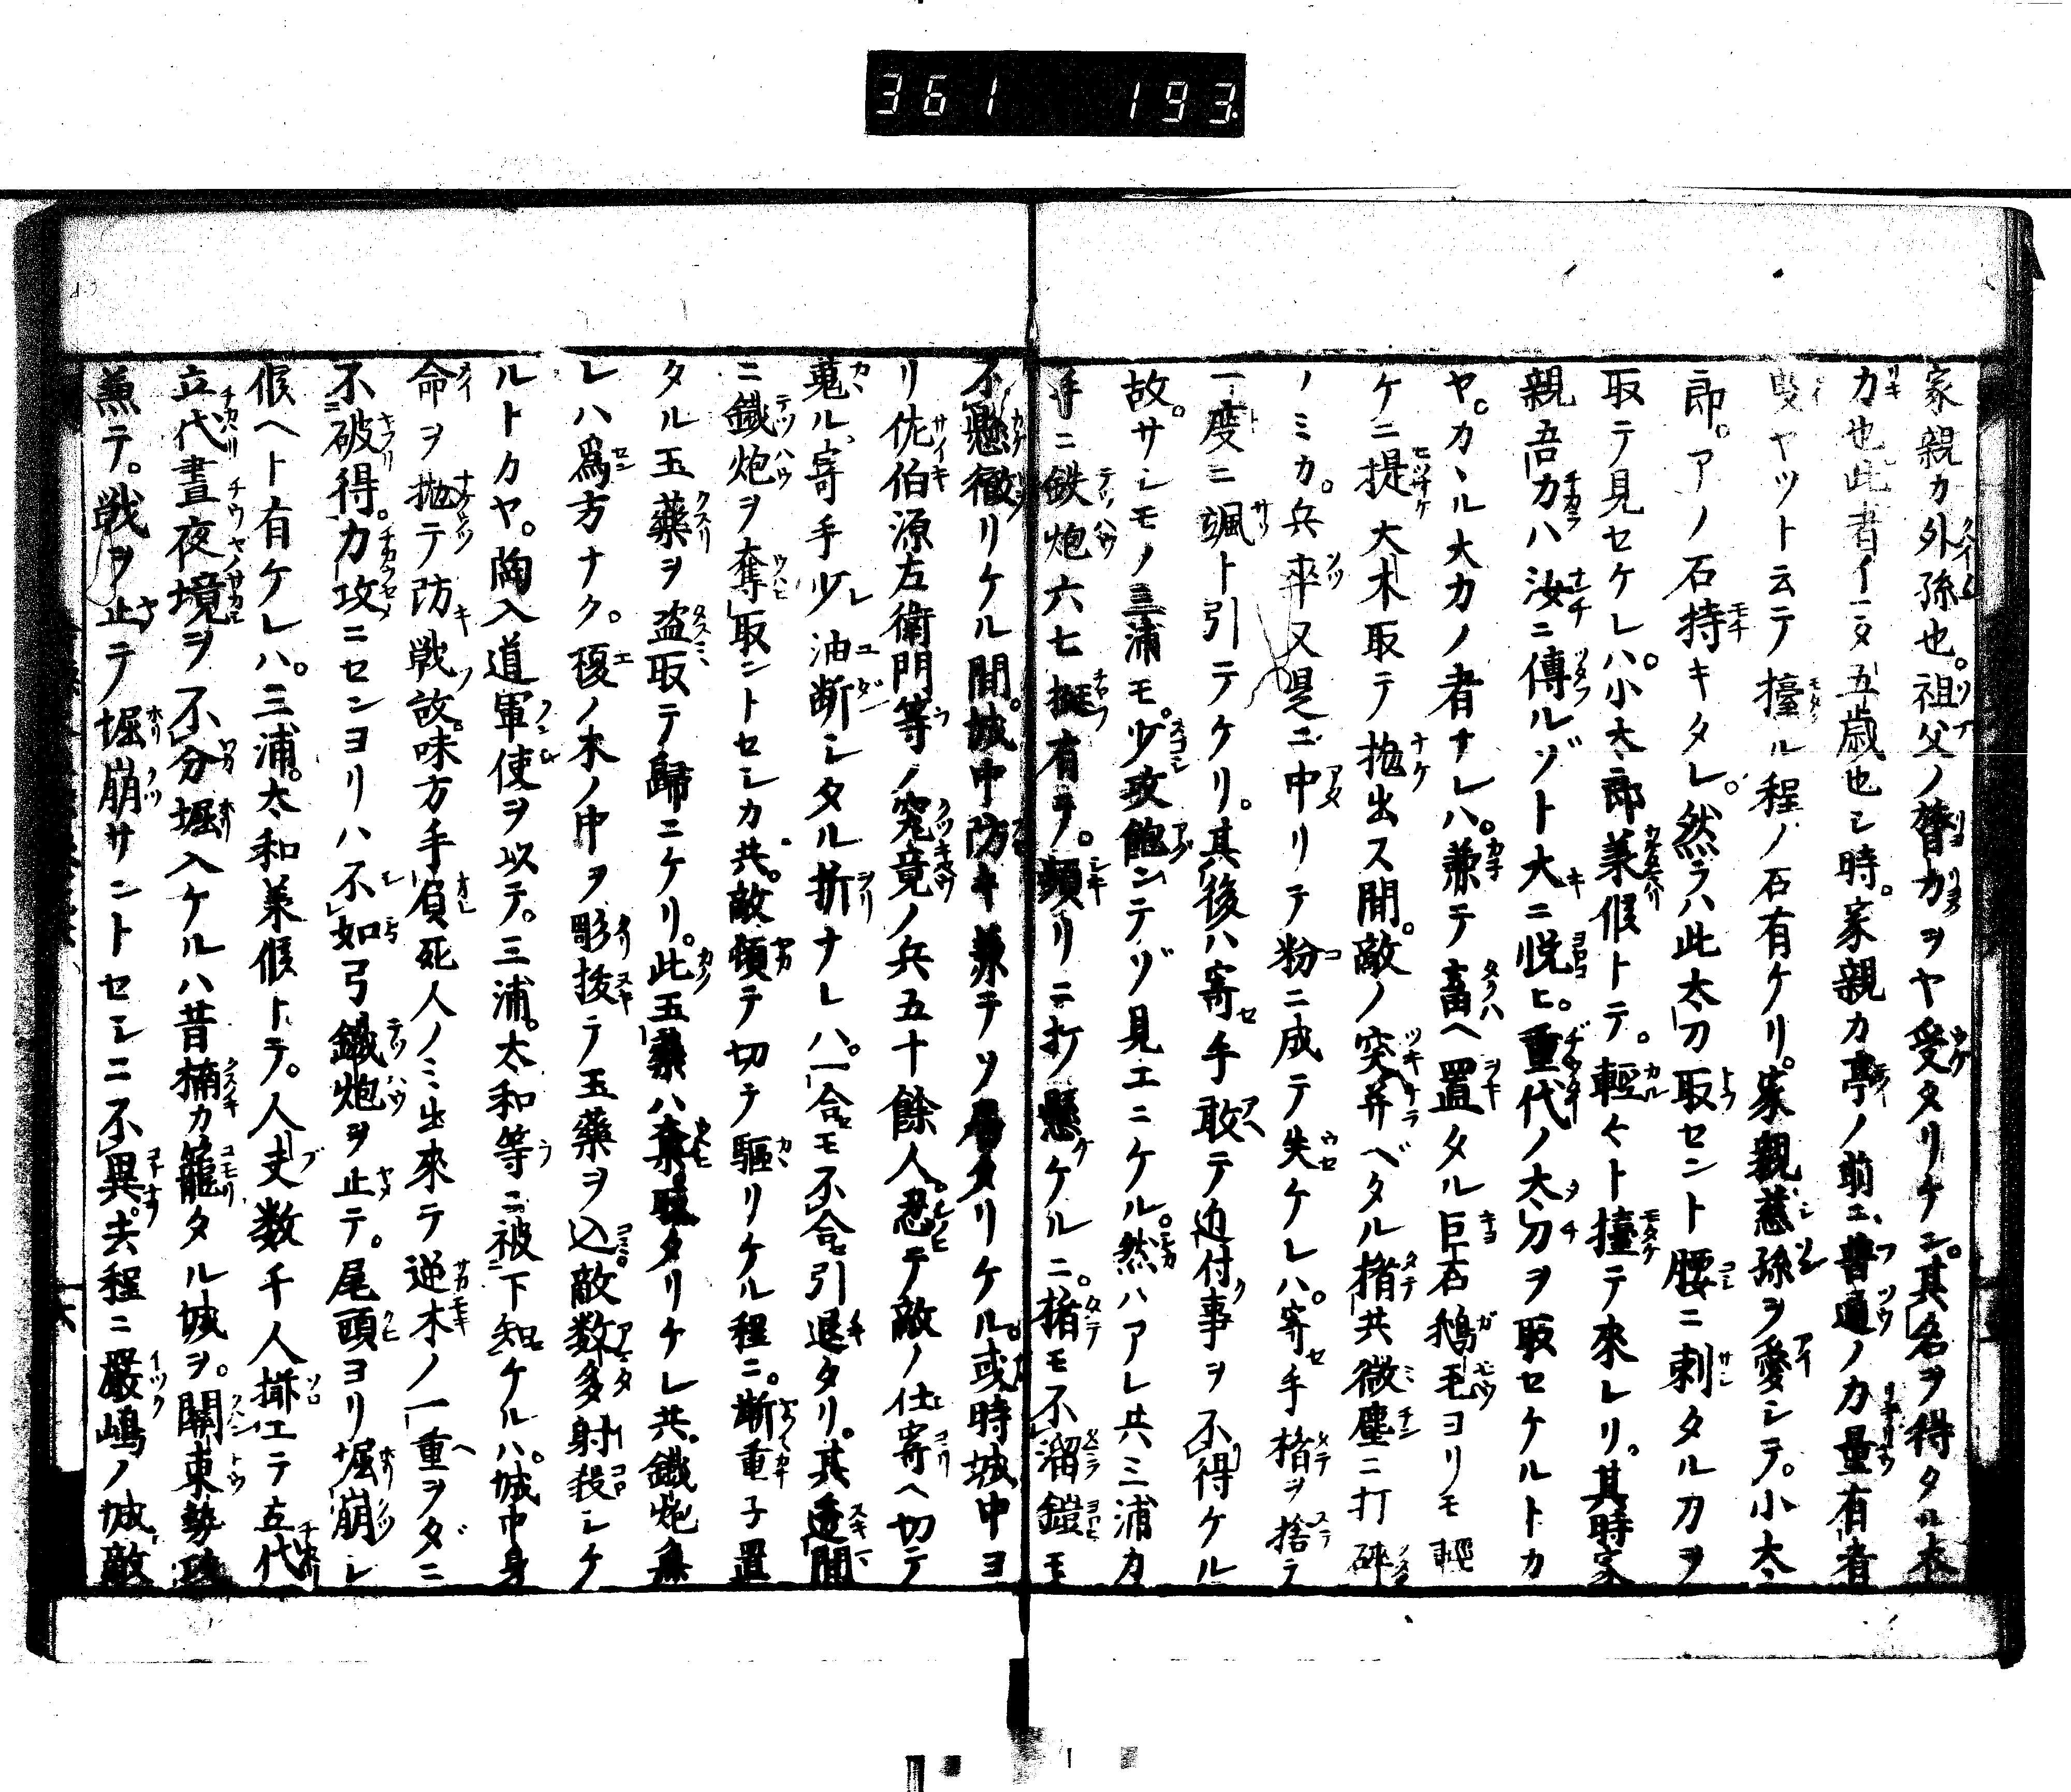 361 193.
家親カ外孫也。祖父ノ膂力ヲヤ受タリケン。其名ヲ得タル大
力也此者イマタ五歳也シ時。家親カ亭ノ前ニ、普通ノ力量有者
曳ヤツト云テ擡ル程ノ石有ケリ。家親慈孫ヲ愛シテ。小太
郎。アノ石持キタレ。然ラハ此太刀取セント腰ニ刺タル刀ヲ
取テ見セケレハ。小太郎羕候トテ。輕々ト擡テ來レリ。其時家
親吾力ハ汝ニ傳ルゾト大ニ悦ヒ。重代ノ太刀ヲ取セケルトカ
ヤ。カヽル大力ノ者ナレハ。兼テ畜ヘ置タル巨石鵝毛ヨリモ輕
ケニ提大木取テ抛出ス間。敵ノ突并ベタル楯共微塵ニ打碎
ノミカ。兵卒又是ニ中リテ粉ニ成テ失ケレハ。寄手楯ヲ捨テ
一度ニ颯ト引テケリ。其後ハ寄手敢テ近付事ヲ不得ケル
故。サシモノ三浦モ。少攻飽ンテゾ見エニケル。然ハアレ共三浦カ
手ニ鉄炮六七挺有ヲ。頻リニ打懸ケルニ。楯モ不溜鎧モ
不懸徹リケル間。城中防キ兼テソ居タリケル。或時城中ヨ
リ佐伯源左衛門等ノ究竟ノ兵五十餘人。忍テ敵ノ仕寄ヘ切テ
蒐ル、寄手少油断シタル折ナレハ。一合モ不合引退タリ。其透間
ニ鐵炮ヲ奪取ントセシカ共。敵頓テ切テ驅リケル程ニ。漸重子置
タル玉藥ヲ盗取テ歸ニケリ。此玉藥ハ奪取タリケレ共。鐵炮無
レハ爲方ナク。榎ノ木ノ中ヲ彫抜テ玉藥ヲ込敵数多射殺シケ
ルトカヤ。陶入道軍使ヲ以テ。三浦。大和等ニ被下知ケルハ。城中身
命ヲ抛テ防戦故。味方手負死人ノミ出來テ逆木ノ一重ヲダニ
不破得。力攻ニセンヨリハ不如弓鐵炮ヲ止テ。尾頭ヨリ堀崩シ
候ヘト有ケレハ。三浦。大和羕候トテ。人夫数千人揃エテ立代
立代晝夜境ヲ不分堀入ケルハ昔楠カ籠タル城ヲ。關東勢攻
兼テ。戦ヲ止テ堀崩サントセシニ不異。去程ニ嚴嶋ノ城敵